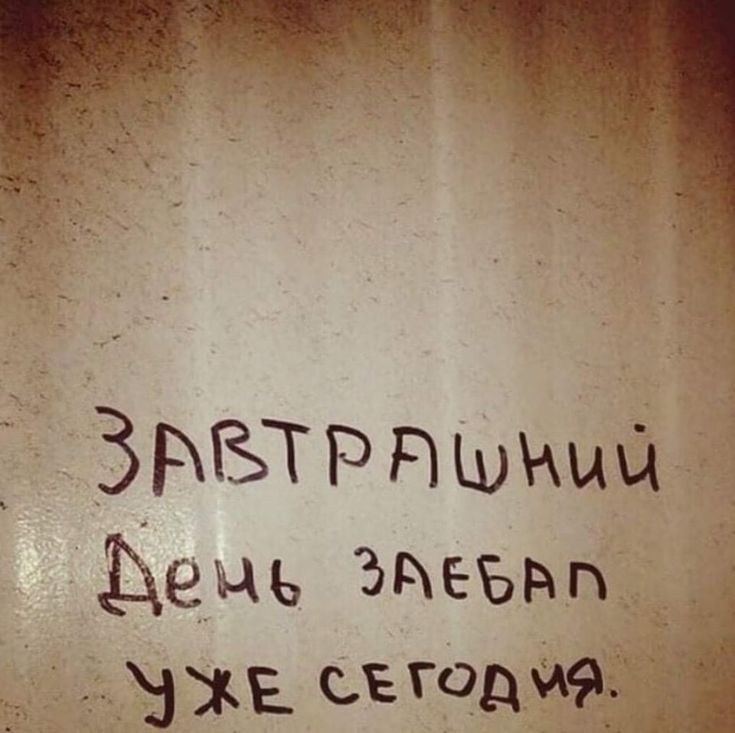 ЗАВТРАШНИЙ
День ЗАЕБАЛ
УЖЕ СЕГОДНЯ.